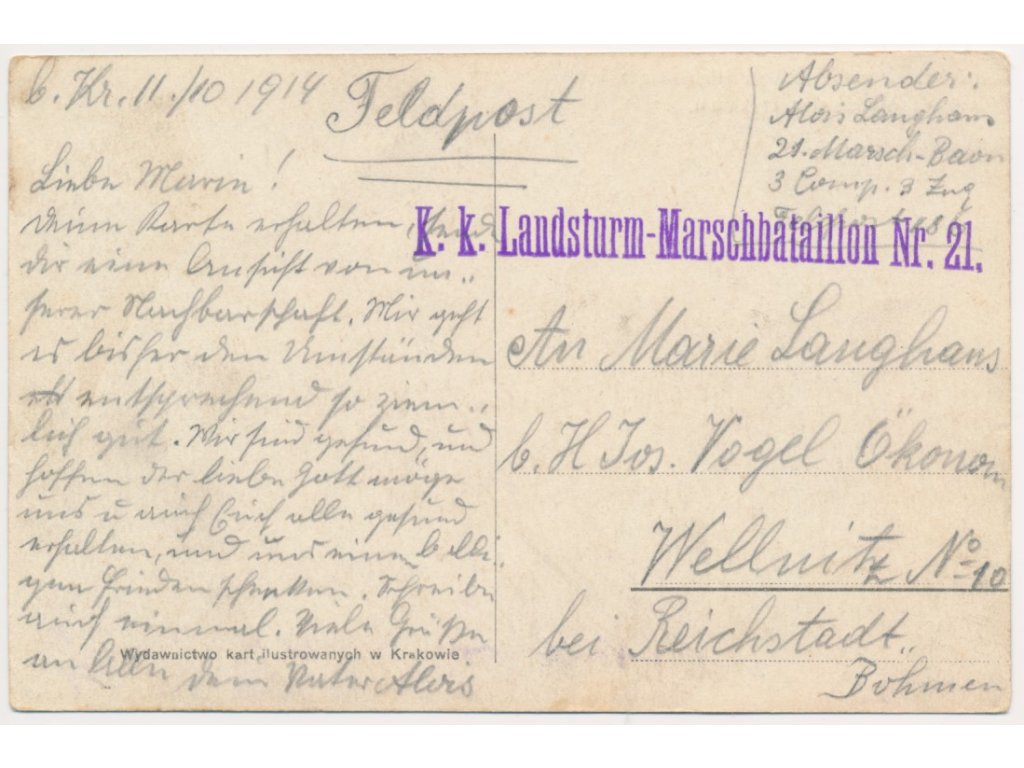 b. Kr. 11./10 1914
Feldpost
Absender:
Alois Langhans
21. Marsch-Baon
3 Comp. 3 Zug
K. k. Landsturm-Marschbataillon Nr. 21.
Liebe Marie!
deine Karte erhalten, sende
dir eine Ansicht von un„
serer Nachbarschaft. Mir geht
es bisher den Umständen
entsprechend so ziem„
lich gut. Wir sind gesund, und
hoffen der liebe Gott möge
uns u auch Euch alle gesund
erhalten, und uns einen baldi
gen Frieden schenken. Schreibe
auch einmal. Viele Grüße
an Alle dein Vater Alois
An Marie Langhans
b. H Jos. Vogel Ökonom
Wellnitz No 10
bei Reichstadt„
Böhmen
Wydawnictwo kart ilustrowanych w Krakowie